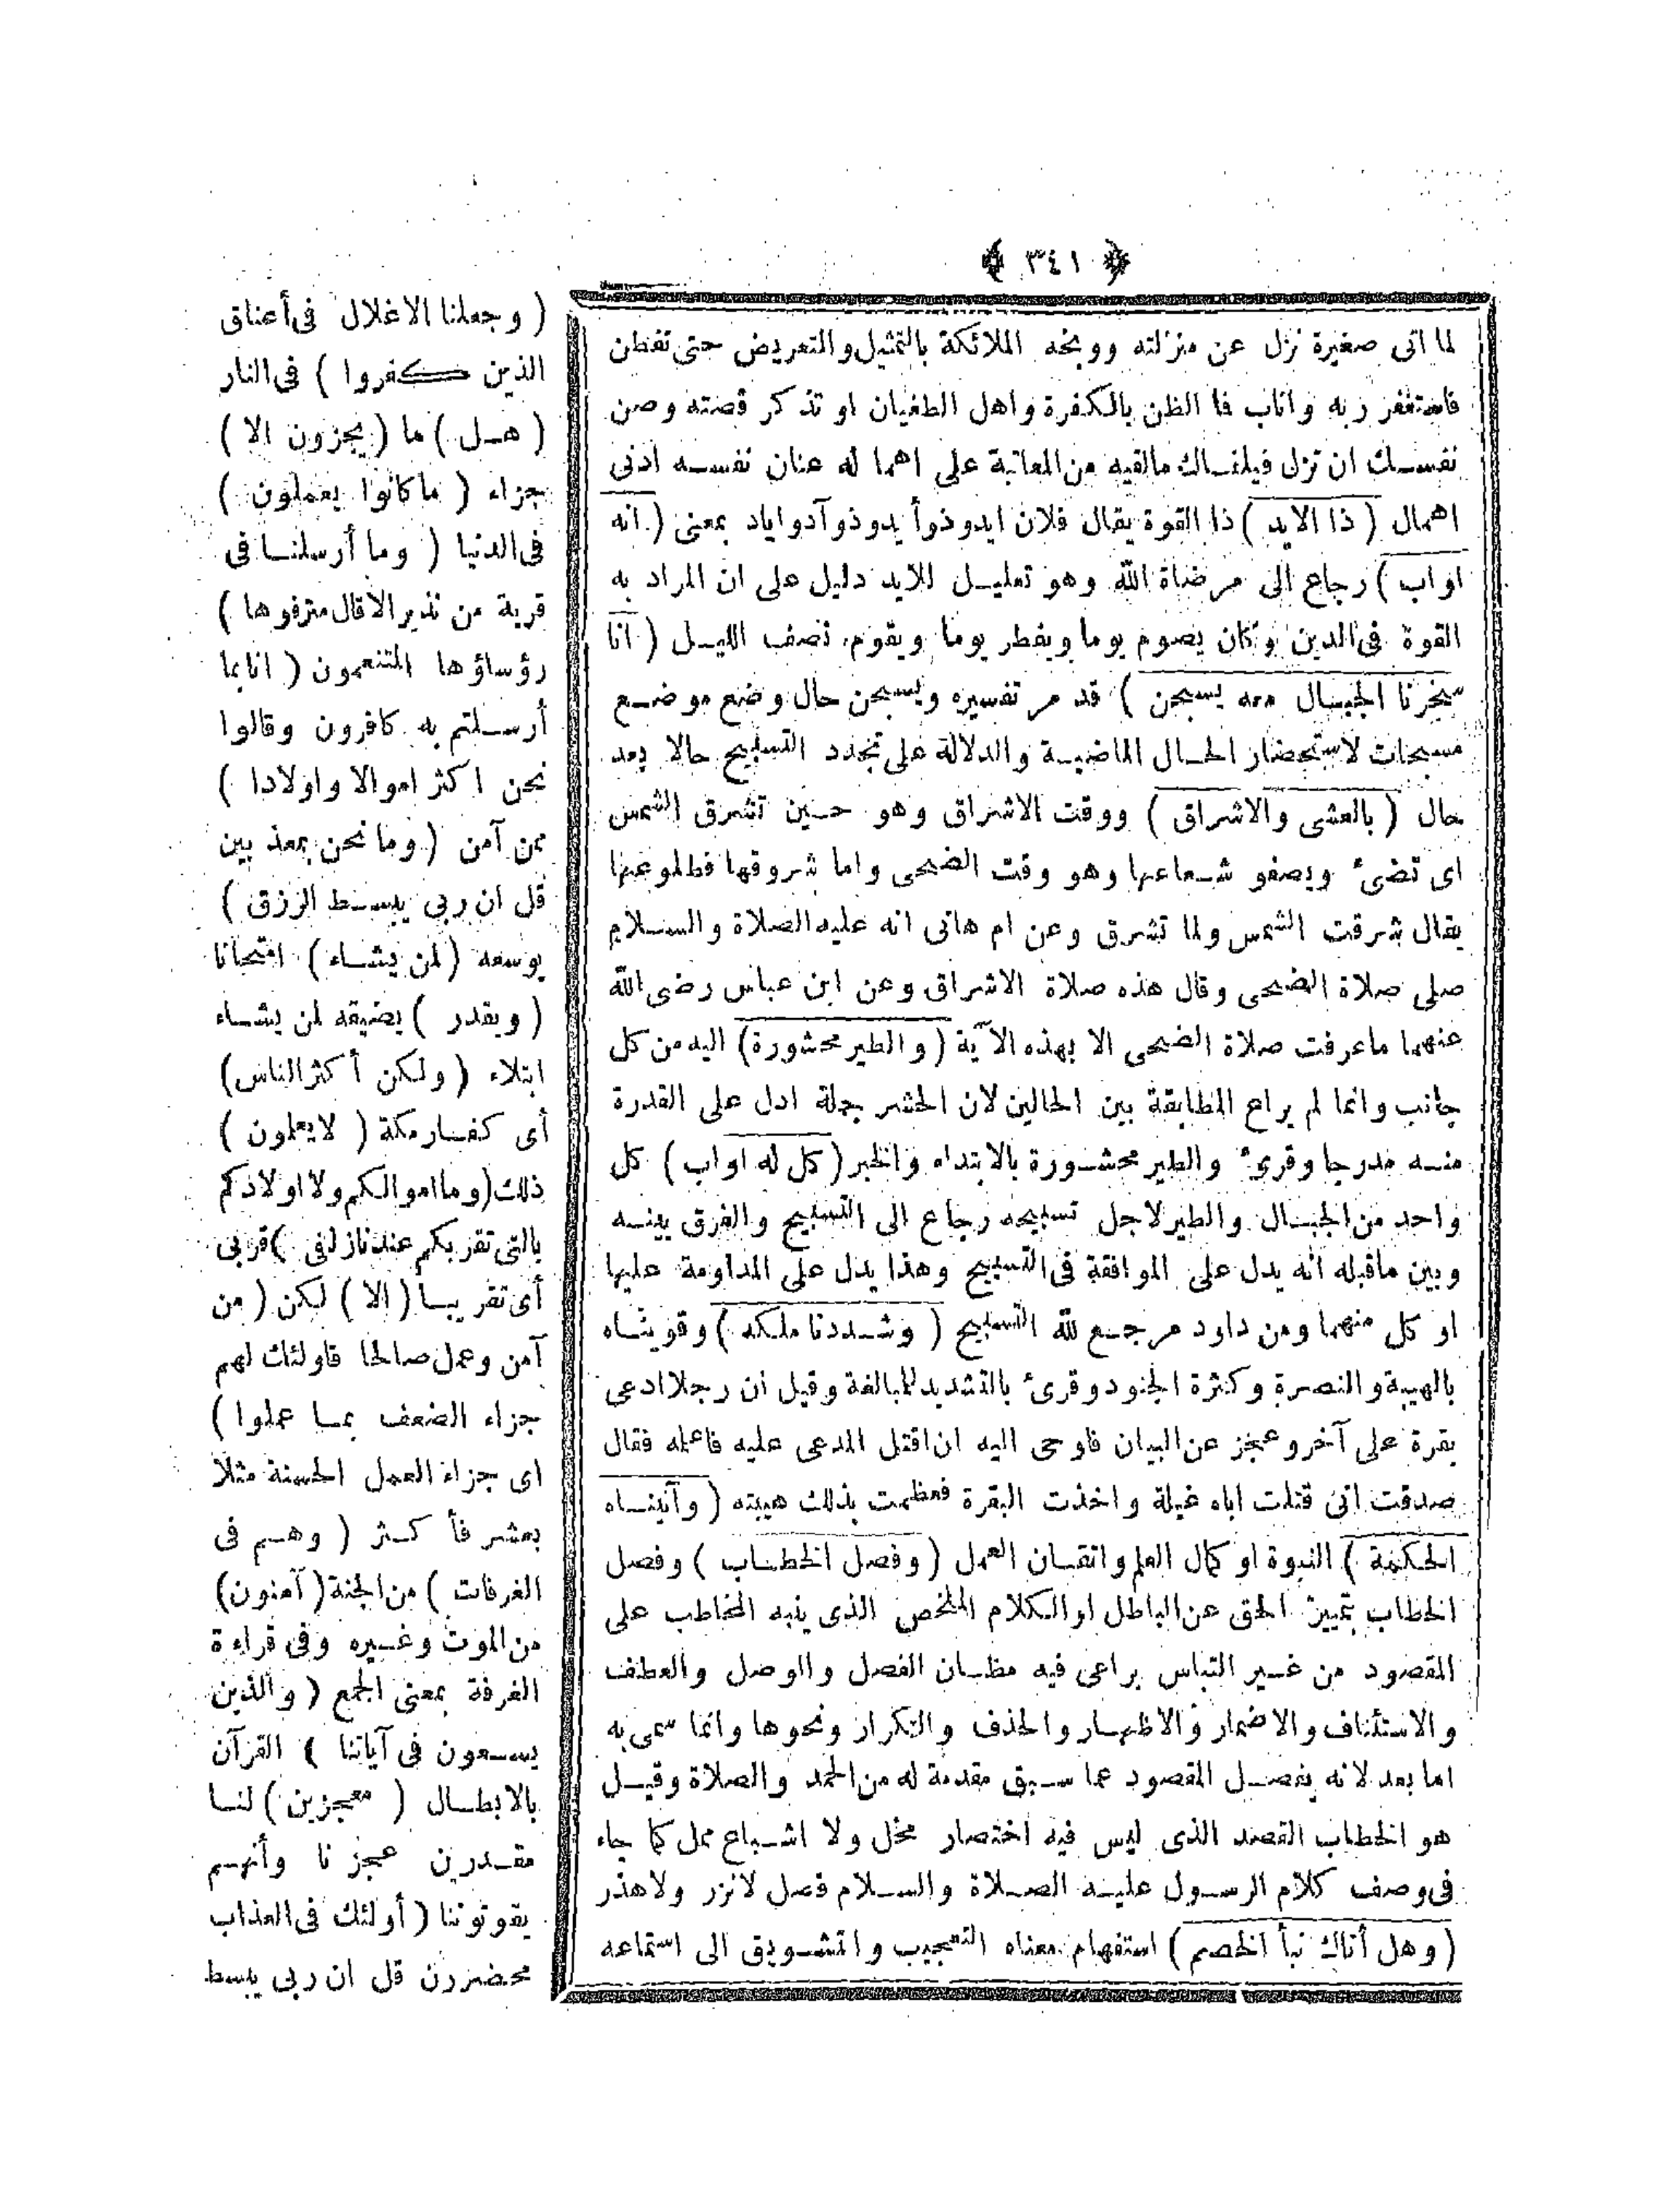 ﴿ ٣٤١ ﴾
لما اتى صغيرة نزل عن منزلته ووبخه الملائكة بالتمثيل والتعريض حتى تفطن
فاستغفر ربه واناب فا الظن بالكفرة واهل الطغيان او تذكر قصته وصن
نفسك ان تزل فيلقاك مالقيه من المعاتبة على اهما له عنان نفسه ادنى
اهمال ( ذا الايد ) ذا القوة يقال فلان ايدوذوأيدوذوآدواياد بمعنى ( انه
اواب ) رجاع الى مرضاة الله وهو تعليل للايد دليل على ان المراد به
القوة فى الدين وكان يصوم يوما ويفطر يوما ويقوم نصف الليل ( انا
سخرنا الجبال معه يسبحن ) قد مر تفسيره ويسبحن حال وضع موضع
مسبحات لاستحضار الحال الماضية والدلالة على تجدد التسبيح حالا بعد
حال ( بالعشى والاشراق ) ووقت الاشراق وهو حين تشرق الشمس
اى تضىء ويصفو شعاعها وهو وقت الضحى واما شروقها فطلوعها
يقال شرقت الشمس ولما تشرق وعن ام هانى انه عليه الصلاة والسلام
صلى صلاة الضحى وقال هذه صلاة الاشراق وعن ابن عباس رضى الله
عنهما ماعرفت صلاة الضحى الا بهذه الآية ( والطير محشورة ) اليه من كل
جانب وانما لم يراع المطابقة بين الحالين لان الحشر جملة ادل على القدرة
منه مدرجا وقرىء والطير محشورة بالابتداء والخبر ( كل له اواب ) كل
واحد من الجبال والطير لاجل تسبيحه رجاع الى التسبيح والفرق بينه
وبين ماقبله انه يدل على الموافقة فى التسبيح وهذا يدل على المداومة عليها
او كل منهما ومن داود مرجع لله التسبيح ( وشددنا ملكه ) وقويناه
بالهيبة والنصرة وكثرة الجنود وقرىء بالتشديد للمبالغة وقيل ان رجلا ادعى
بقرة على آخر وعجز عن البيان فاوحى اليه ان اقتل المدعى عليه فاعلمه فقال
صدقت انى قتلت اباه غيلة واخذت البقرة فعظمت بذلك هيبته ( وآتيناه
الحكمة ) النبوة او كمال العلم واتقان العمل ( وفصل الخطاب ) وفصل
الخطاب بتمييز الحق عن الباطل او الكلام الملخص الذى ينبه المخاطب على
المقصود من غير التباس يراعى فيه مظان الفصل والوصل والعطف
والاستئناف والاضمار والاظهار والحذف والتكرار ونحوها وانما سمى به
اما بعد لانه يفصل المقصود عما سبق مقدمة له من الحمد والصلاة وقيل
هو الخطاب القصد الذى ليس فيه اختصار مخل ولا اشباع ممل كما جاء
فى وصف كلام الرسول عليه الصلاة والسلام فصل لانزر ولاهذر
( وهل أتاك نبأ الخصم ) استفهام معناه التعجيب والتشويق الى استماعه
( وجعلنا الاغلال فى أعناق
الذين كفروا ) فى النار
( هل ) ما ( يجزون الا )
جزاء ( ماكانوا يعملون )
فى الدنيا ( وما أرسلنا فى
قرية من نذير الاقال مترفوها )
رؤساؤها المتنعمون ( انابما
أرسلتم به كافرون وقالوا
نحن اكثر اموالا واولادا )
ممن آمن ( وما نحن بمعذبين
قل ان ربى يبسط الرزق )
يوسعه ( لمن يشاء ) امتحانا
( ويقدر ) يضيقه لمن يشاء
ابتلاء ( ولكن أكثر الناس )
أى كفار مكة ( لايعلمون )
ذلك ( وما اموالكم ولا اولادكم
بالتى تقربكم عندنا زلفى ) قربى
أى تقريبا ( الا ) لكن ( من
آمن وعمل صالحا فاولئك لهم
جزاء الضعف بما عملوا )
اى جزاء العمل الحسنة مثلا
بعشر فأكثر ( وهم فى
الغرفات ) من الجنة ( آمنون )
من الموت وغيره وفى قراءة
الغرفة بمعنى الجمع ( والذين
يسعون فى آياتنا ) القرآن
بالابطال ( معجزين ) لنا
مقدرين عجزنا وأنهم
يفوتوننا ( أولئك فى العذاب
محضرون قل ان ربى يبسط